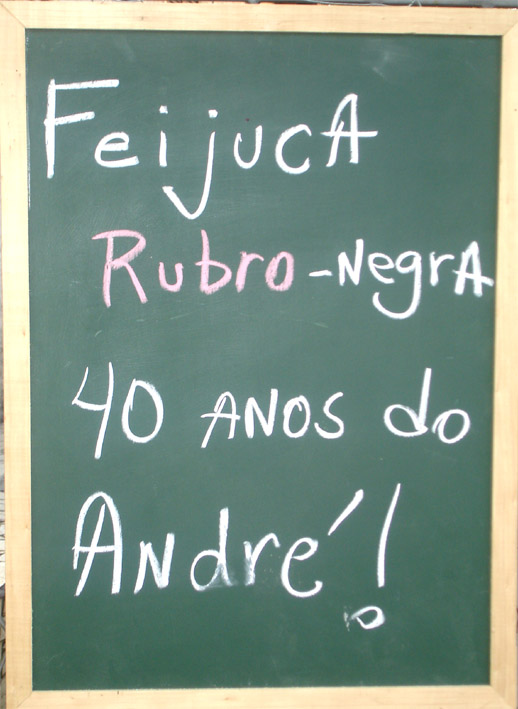 FeijucA
Rubro-NegrA
40 ANOS do
André!